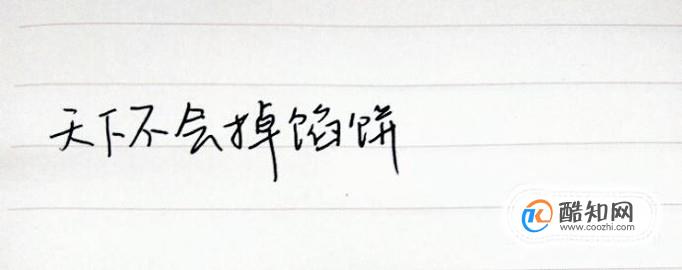 天下不会掉馅饼
酷知网
www.coozhi.com